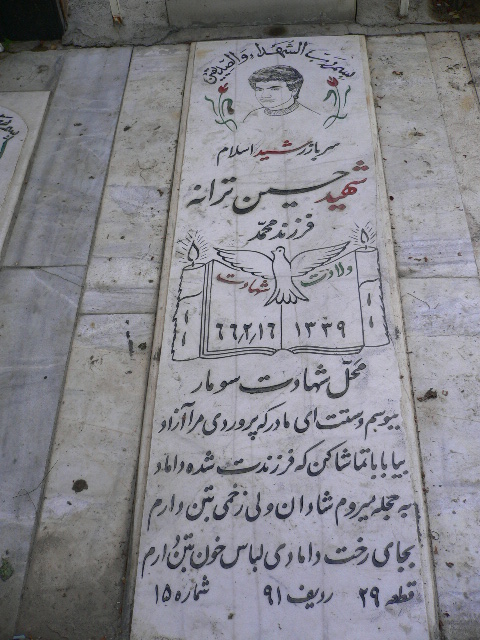 بسم رب الشهداء والصدیقین
سرباز رشید اسلام
شهید حسین ترانه
فرزند محمد
ولادت شهادت
۱۳۳۹ ۶۶٫۲٫۱۶
محل شهادت سومار
ببوسم دستت ای مادر که پروردی مرا آزاد
بیا بابا تماشا کن که فرزندت شده داماد
به حجله میروم شادان ولی زخمی بتن دارم
بجای رخت دامادی لباس خون بتن دارم
قطعه ۲۹ ردیف ۹۱ شماره ۱۵